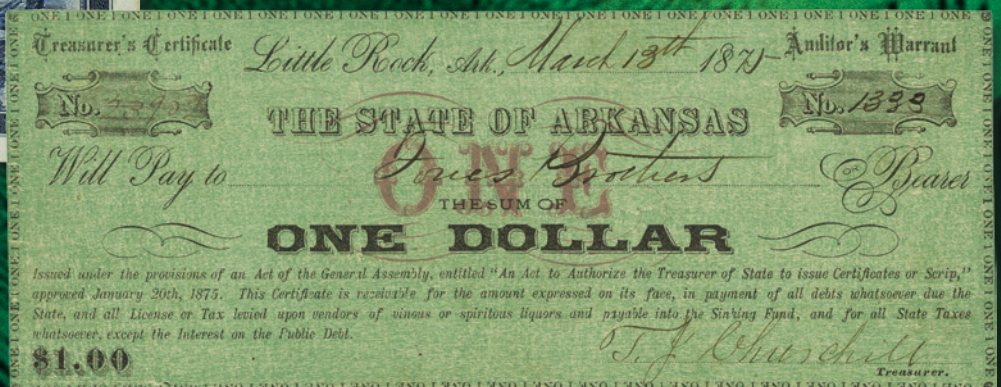 ONE 1 ONE 1 ONE 1 ONE 1 ONE 1 ONE 1 ONE 1 ONE 1 ONE 1 ONE 1 ONE 1 ONE 1 ONE
Treasurer's Certificate
Little Rock, Ark., March 13th 1875
Auditor's Warrant
No.
No. 1333
THE STATE OF ARKANSAS
ONE
Will Pay to Jones Brothers OR Bearer
THE SUM OF
ONE DOLLAR
Issued under the provisions of an Act of the General Assembly, entitled "An Act to Authorize the Treasurer of State to issue Certificates or Scrip,"
approved January 20th, 1875. This Certificate is receivable for the amount expressed on its face, in payment of all debts whatsoever due the
State, and all License or Tax levied upon vendors of vinous or spiritous liquors and payable into the Sinking Fund, and for all State Taxes
whatsoever, except the Interest on the Public Debt.
$1.00
T. J. Churchill
Treasurer.